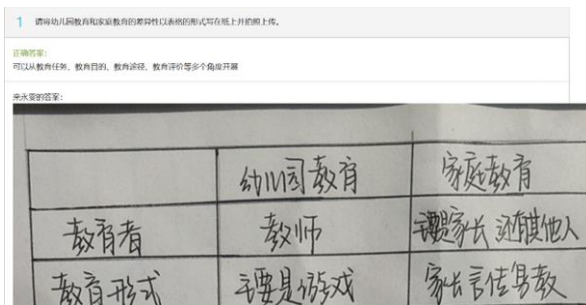 1 请将幼儿园教育和家庭教育的差异性以表格的形式写在纸上并拍照上传。
正确答案：
可以从教育任务、教育目的、教育途径、教育评价等多个角度开展
来永雯的答案：
幼儿园教育 家庭教育
教育者 教师 主要是家长 还有其他人
教育形式 主要是游戏 家长言传身教